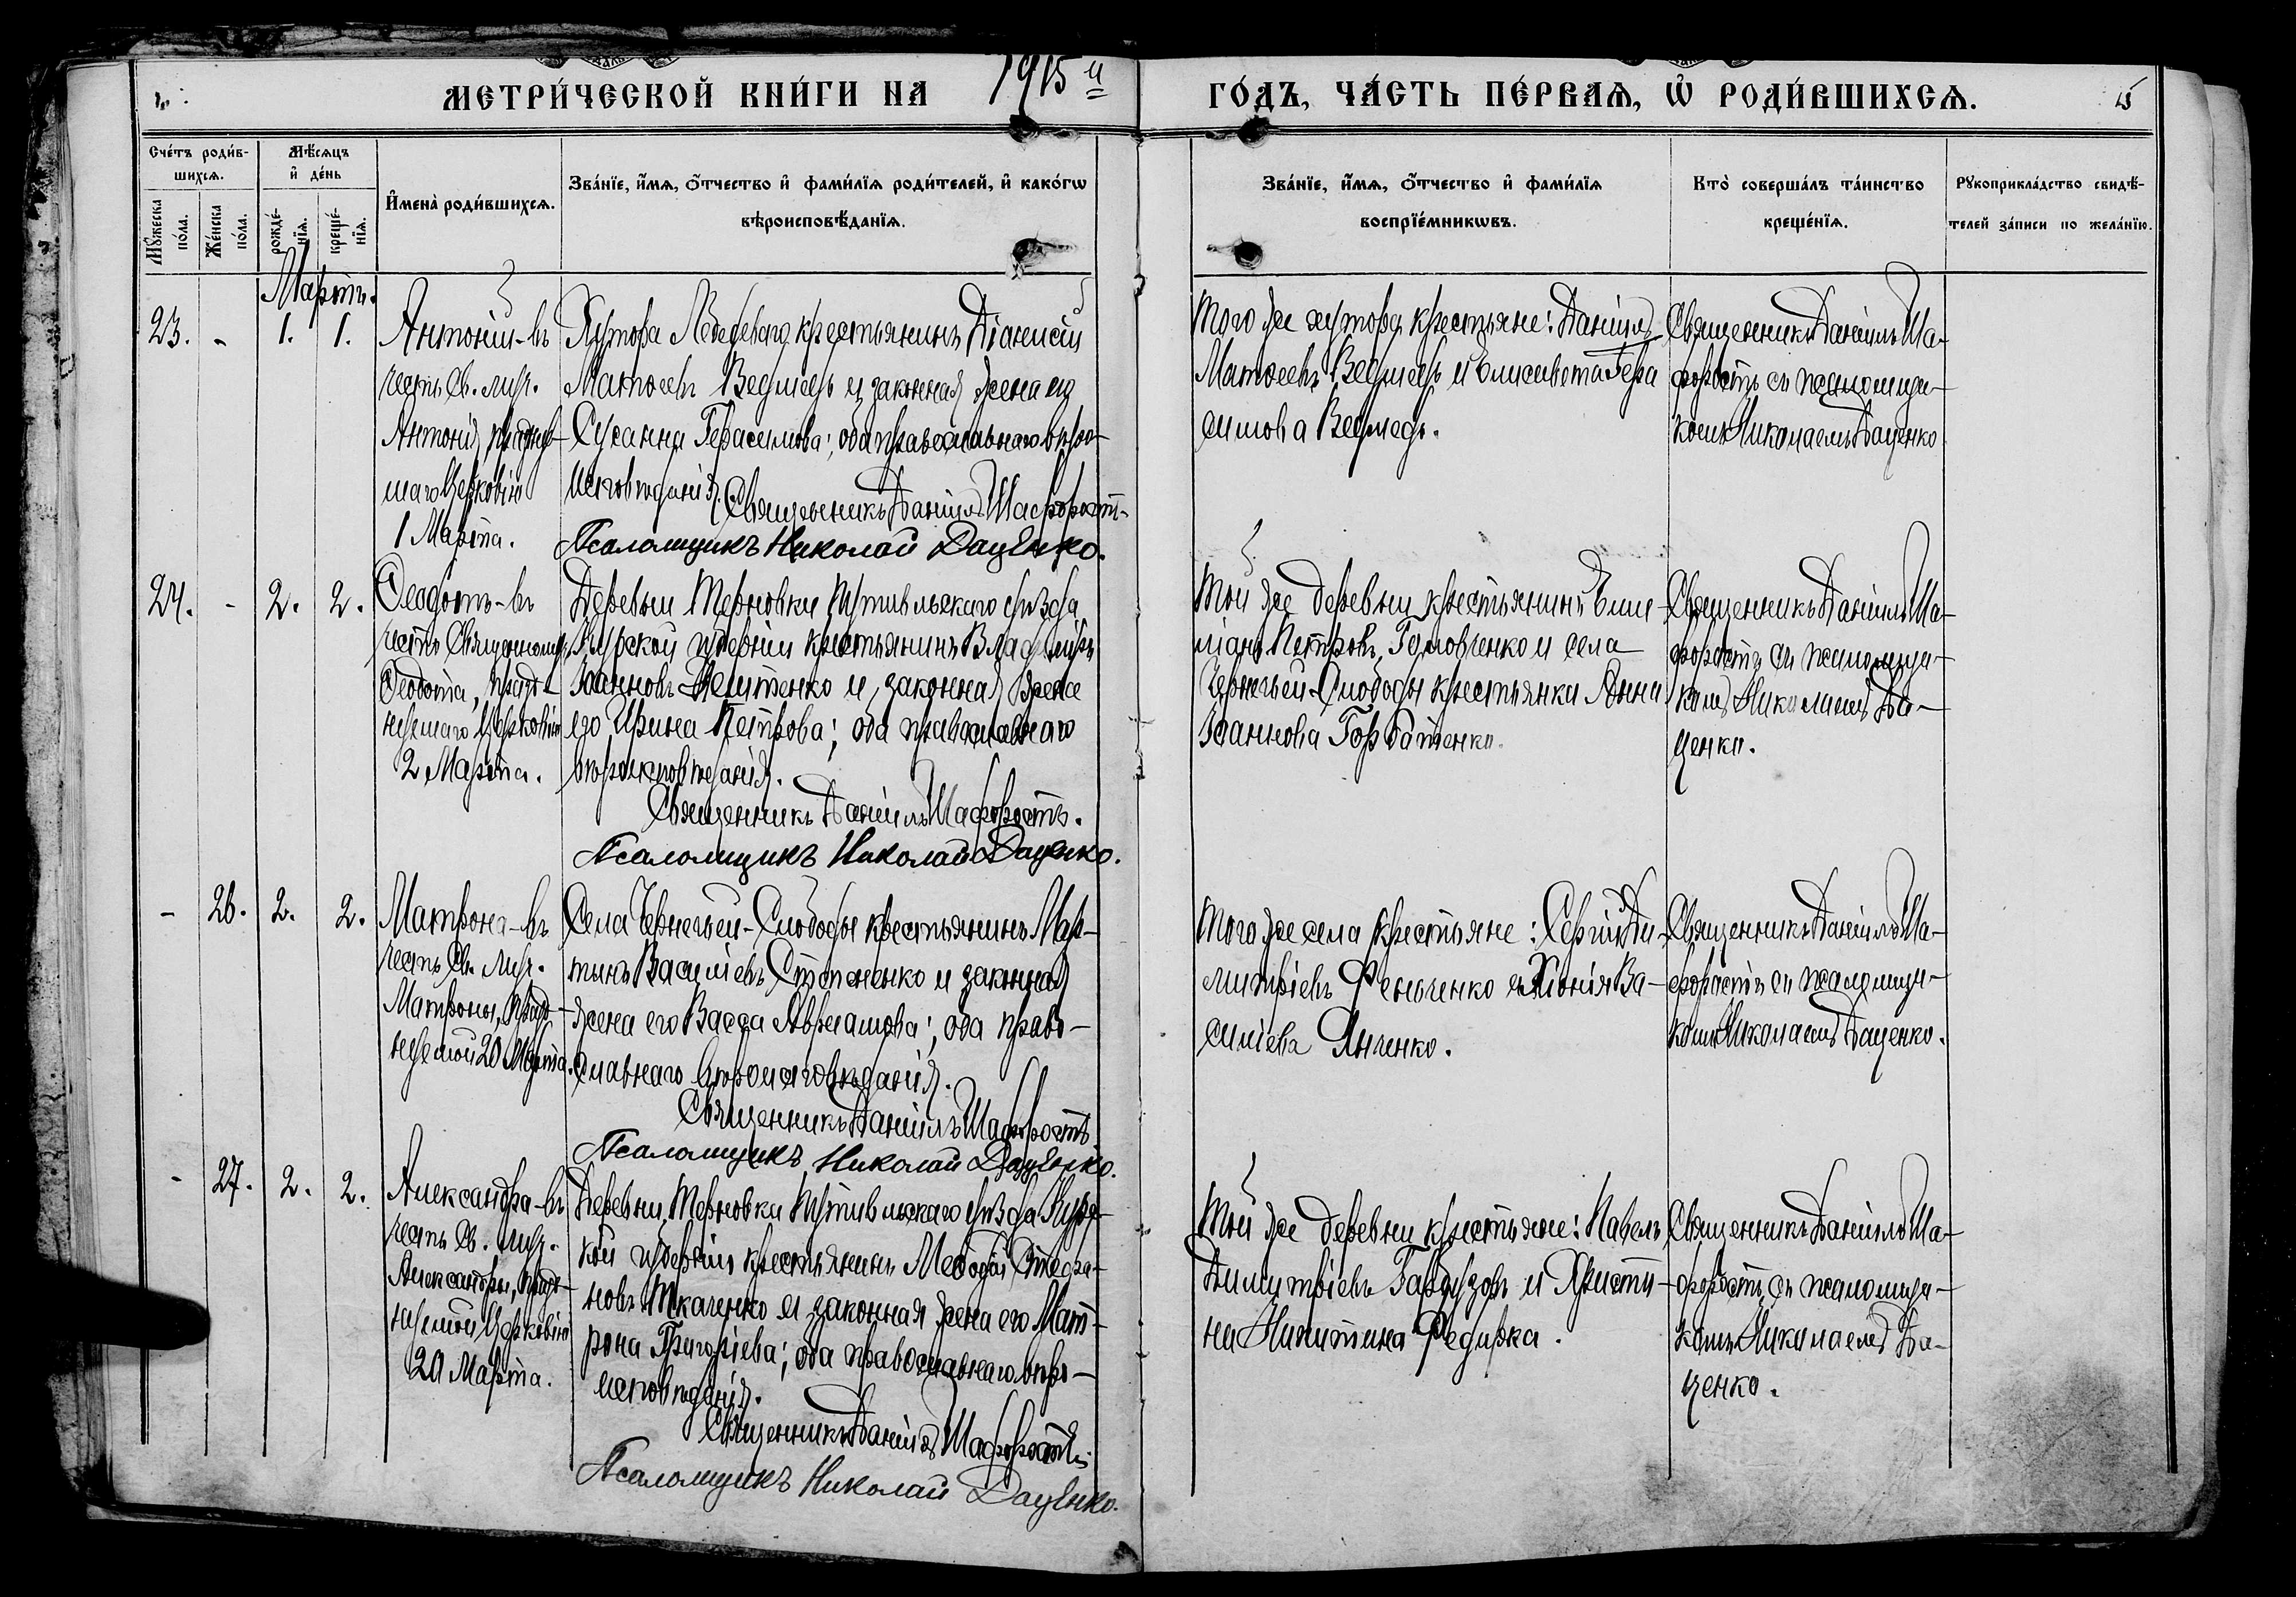 МЕТРИ́ЧЕСКОЙ КНИ́ГИ НА 1915й ГО́ДЪ, ЧА́СТЬ ПЕ́РВАѦ, Ѡ҆ РОДИ́ВШИХСѦ.
Сче́тъ роди́в-
шихсѧ.
Мꙋ́жеска по́ла.
Же́нска по́ла.
Мѣ́сѧцъ
и҆ де́нь
рожде́-
нїѧ.
креще́-
нїѧ.
И҆мена̀ роди́вшихсѧ.
Зва́нїе, и҆́мѧ, ѻ҆́тчество и҆ фами́лїѧ роди́телей, и҆ како́гѡ
вѣроисповѣ́данїѧ.
Зва́нїе, и҆́мѧ, ѻ҆́тчество и҆ фами́лїѧ
воспрїе́мникѡвъ.
Кто̀ соверша́лъ та́инство
креще́нїѧ.
Рꙋкоприкла́дство свидѣ́-
телей за́писи по жела́нїю.
Мартъ.
23. - 1. 1.
Антоній-въ
честь Св. муч.
Антонія, празд
маго Церковію
1 Марта.
Хутора Лебедеваго крестьянинъ Діонисій
Матѳеевъ Ведмедь и законная жена его
Сусанна Герасимова; оба православнаго вѣро-
исповѣданія.
Священникъ Даніилъ Шафоростъ
Псаломщикъ Николай Даценко.
Того же хутора крестьяне: Даніилъ
Матѳеевъ Ведмедь и Елисавета Гера
симова Ведмедь.
Священникъ Даніилъ Ша-
форостъ съ псаломщи-
комъ Николаемъ Даценко
24. - 2. 2.
Ѳеодотъ-въ
честь Священномуч.
Ѳеодота, празд-
нуемаго Церковію
2 Марта.
Деревни Терновки Путивльскаго уѣзда
Курской губерніи крестьянинъ Владиміръ
Іоанновъ и законная жена
его Ирина Петрова; оба православнаго
вѣроисповѣданія.
Священникъ Даніилъ Шафоростъ.
Псаломщикъ Николай Даценко.
Той же деревни крестьянинъ Еми-
ліанъ Петровъ Головченко и села
Чернечьей-Слободы крестьянка Анна
Іоаннова Горбатенко.
Священникъ Даніилъ Ша-
форостъ съ псаломщи-
комъ Николаемъ Да-
ценко.
- 26. 2. 2.
Матрона-въ
честь Св. муч.
Матроны, празд-
нуемой 20 Марта.
Села Чернечьей-Слободы крестьянинъ Мар-
тинъ Василіевъ Степаненко и законная
жена его Васса Авраамова; оба право-
славнаго вѣроисповѣданія.
Священникъ Даніилъ Шафоростъ
Псаломщикъ Николай Даценко.
Того же села крестьяне: Сергій Ди-
митріевъ Фенченко и Хіонія Ва-
силіева Янченко.
Священникъ Даніилъ Ша-
форостъ съ псаломщи-
комъ Николаемъ Даценко.
- 27. 2. 2.
Александра-въ
честь Св. муч.
Александры, празд-
нуемой Церковію
20 Марта.
Деревни Терновки Путивльскаго уѣзда Курс-
кой губерніи крестьянинъ Меѳодій Стефа-
новъ Ткаченко и законная жена его Мат-
рона Григоріева; оба православнаго вѣро-
исповѣданія.
Священникъ Даніилъ Шафоростъ
Псаломщикъ Николай Даценко.
Той же деревни крестьяне: Павелъ
Димитріевъ Гарбузовъ и Христи-
на Никитина Федирка.
Священникъ Даніилъ Ша-
форостъ съ псаломщи-
комъ Николаемъ Да-
ценко.